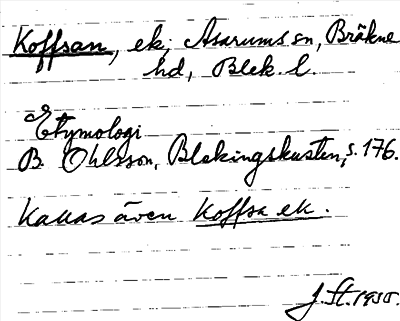 Koffsan, ek; Asarums sn, Bräkne
hd, Blek. l.
Etymologi
B. Ohlsson, Blekingskusten, s. 176.
Kallas även Koffsa ek.
J. St. 1950.